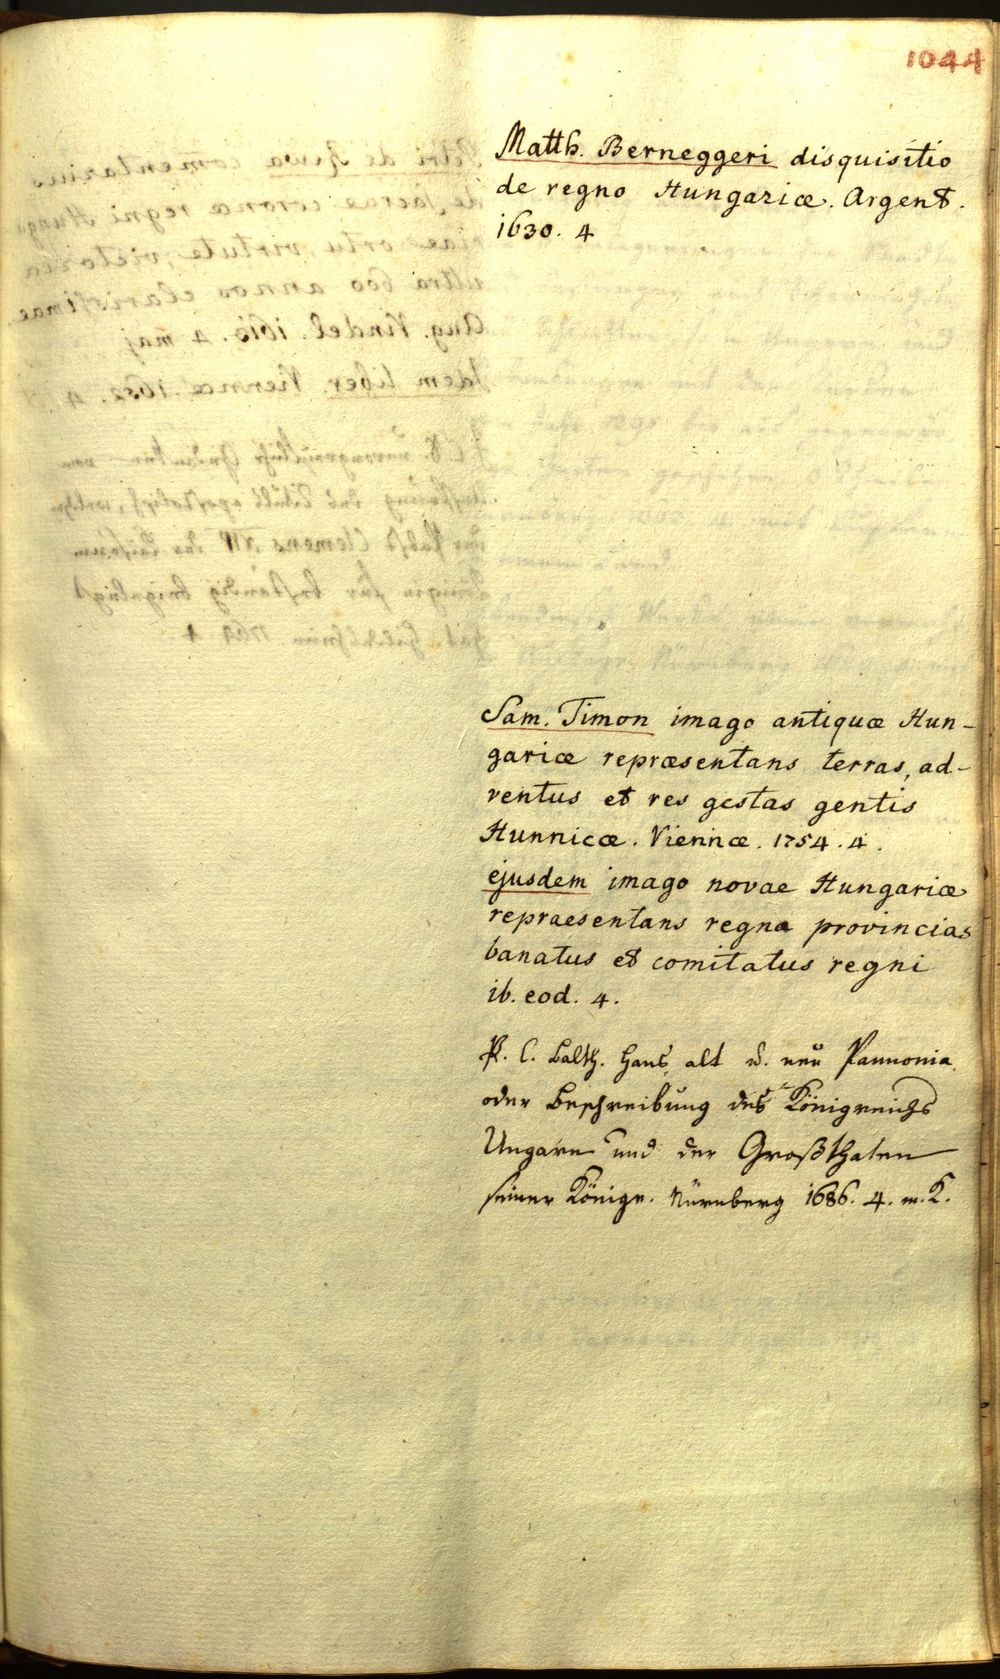 1044
Matth. Berneggeri disquisitio
de regno Hungariæ. Argent.
1630. 4
Sam. Timon imago antiquæ Hun-
gariæ repræsentans terras, ad-
ventus et res gestas gentis
Hunnicæ. Viennæ. 1754. 4.
ejusdem imago novae Hungariæ
repraesentans regna provincias
banatus et comitatus regni
ib. eod. 4.
C. Balth. Hans alt u. neu Pannonia
oder Beschreibung des Königreichs
Ungarn und der Großthaten
seiner Könige. Nürnberg 1686. 4. m. K.